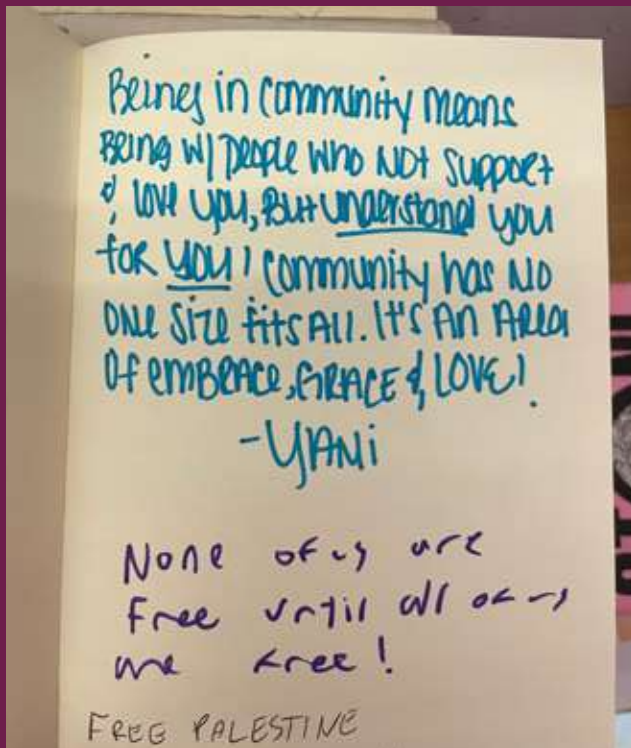 Being in community means
BEING W/ PEOPLE WHO NOT SUPPORT
& LOVE YOU, BUT understand you
for YOU! Community has NO
ONE SIZE fits ALL. It's AN AREA
OF EMBRACE, GRACE & LOVE!
-YANi
None of us are
free until all of us
are free!
FREE PALESTINE